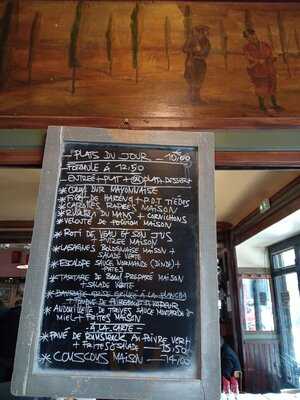 PLATS DU JOUR 10,00
FORMULE A 12,50
ENTREE + PLAT + DESSERT
* OEUF DUR MAYONNAISE
* FILET DE HARENG + POT TIEDES
* CAROTTES RAPEES MAISON
* RILLETTES DU MANS + CORNICHONS
* VELOUTE DE MAISON
* ROTI DE VEAU & SON JUS
PUREE MAISON
* LASAGNES BOLOGNAISE MAISON +
SALADE VERTE
* ESCALOPE SAUCE NORMANDE (DINDE) +
PATES
* TARTARE DE BOEUF PREPARE MAISON
+ SALADE VERTE
* ANDOUILLETTE DE TROYES SAUCE MOUTARDE &
MIEL + FRITES MAISON
- A LA CARTE -
* PAVE DE RUMSTEACK AU POIVRE VERT
+ FRITES & SALADE 15,50
* COUSCOUS MAISON 14,00